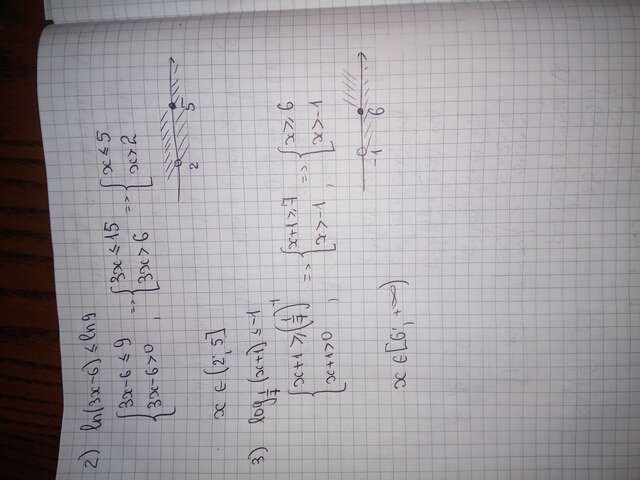 2) ln(3x-6) ≤ ln9
{3x-6 ≤ 9, 3x-6 > 0, => {3x ≤ 15, 3x > 6 => {x ≤ 5, x > 2
2 5
x ∈ (2; 5]
3) log_{1/7}(x+1) ≤ -1
{x+1 ≥ (1/7)^{-1}, x+1 > 0, => {x+1 ≥ 7, x > -1, => {x ≥ 6, x > -1
-1 6
x ∈ [6; +∞)